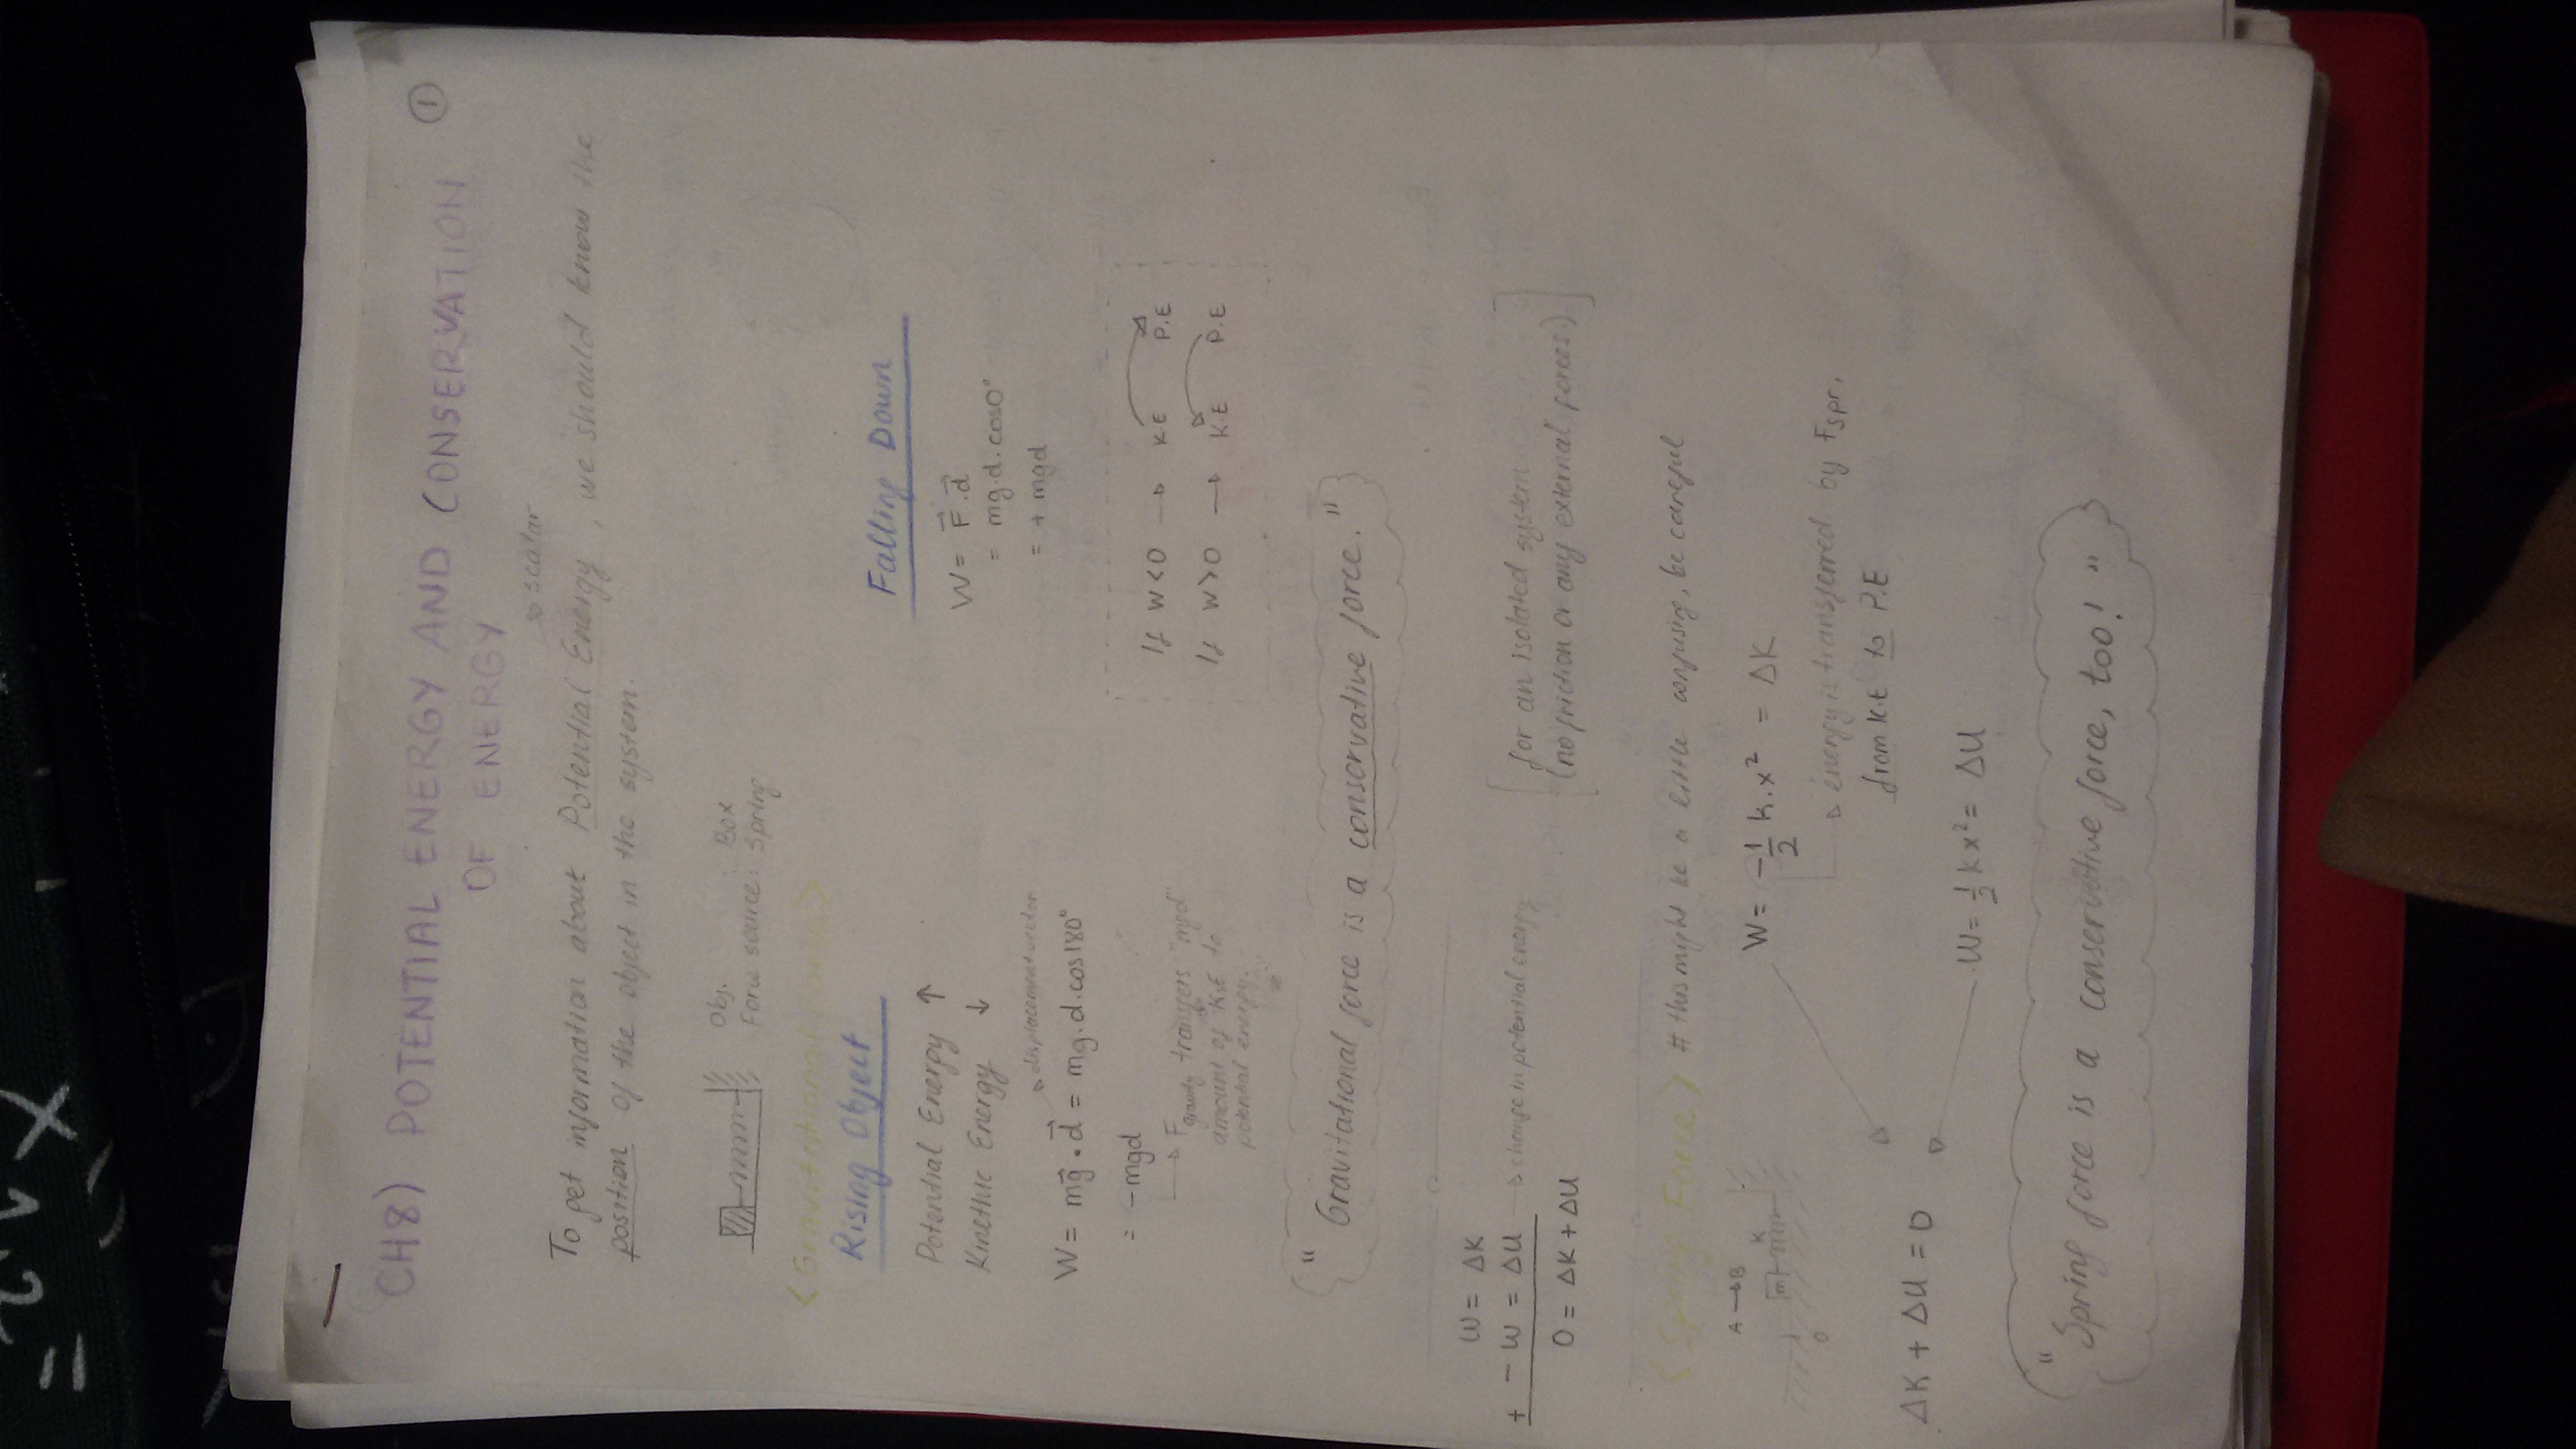 CH8) POTENTIAL ENERGY AND CONSERVATION
OF ENERGY
1
scalar
To get information about Potential Energy, we should know the
position of the object in the system.
Obj. : Box
Force source: Spring
<Gravitational Force>
Rising Object
Potential Energy ↑
Kinethic Energy ↓
displacement vector
W = mg⃗ . d⃗ = mg.d.cos180°
= -mgd
→ Fgravity transfers "mgd"
amount of K.E to
potential energy.
Falling Down
W = F⃗ . d⃗
= mg.d.cos0°
= + mgd
If W<0 → K.E P.E
If W>0 → K.E P.E
" Gravitational force is a conservative force."
W = ΔK
+ - W = ΔU → change in potential energy
0 = ΔK + ΔU
[for an isolated system
(no friction or any external forces.)]
<Spring Force> # this might be a little confusing, be careful
A → B
K
m
0
W = -1/2 k.x² = ΔK
→ energy is transferred by Fspr,
from K.E to P.E
ΔK + ΔU = 0
W = 1/2 kx² = ΔU
"Spring force is a conservative force, too!"